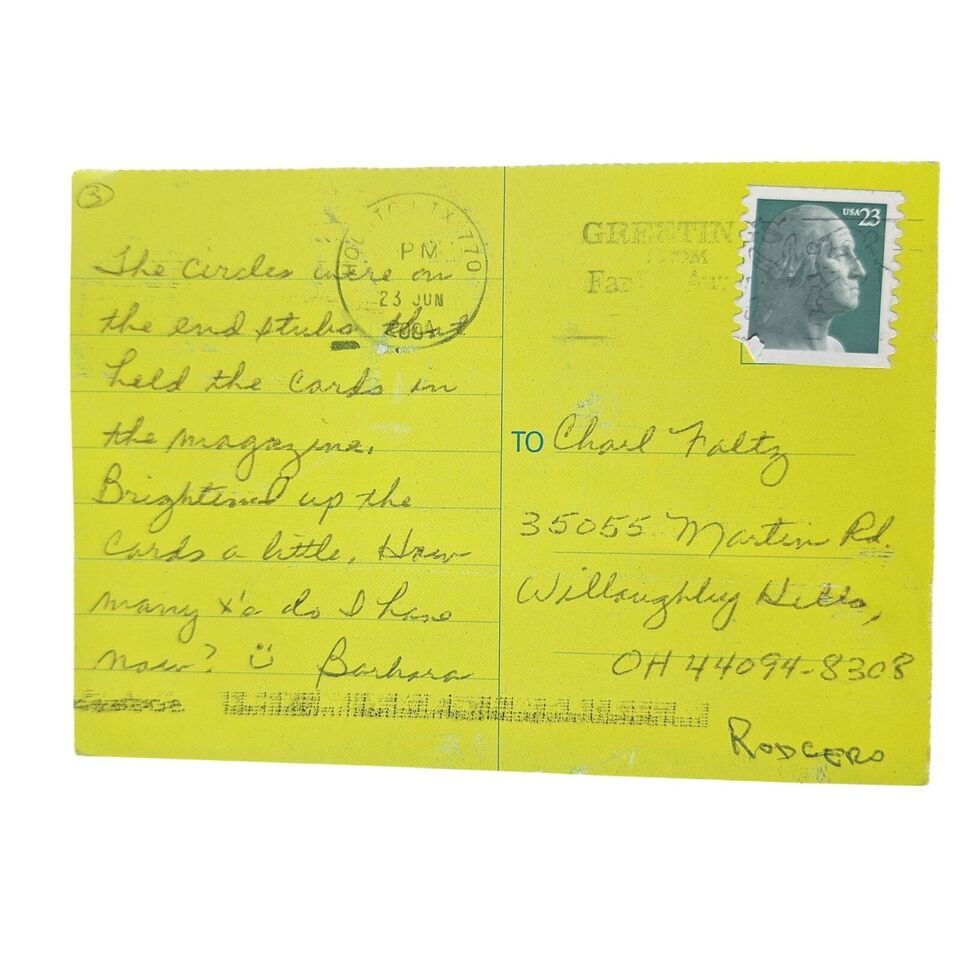 3
The circles were on
the end stubs that
held the cards in
the magazine.
Brightened up the
cards a little. How
many x's do I have
now? Barbara
TX 770
PM
23 JUN
2004
GREETINGS
FROM
USA 23
TO Faltz
35055 Martin Rd.
Willoughby Hills,
OH 44094-8308
RODGERS